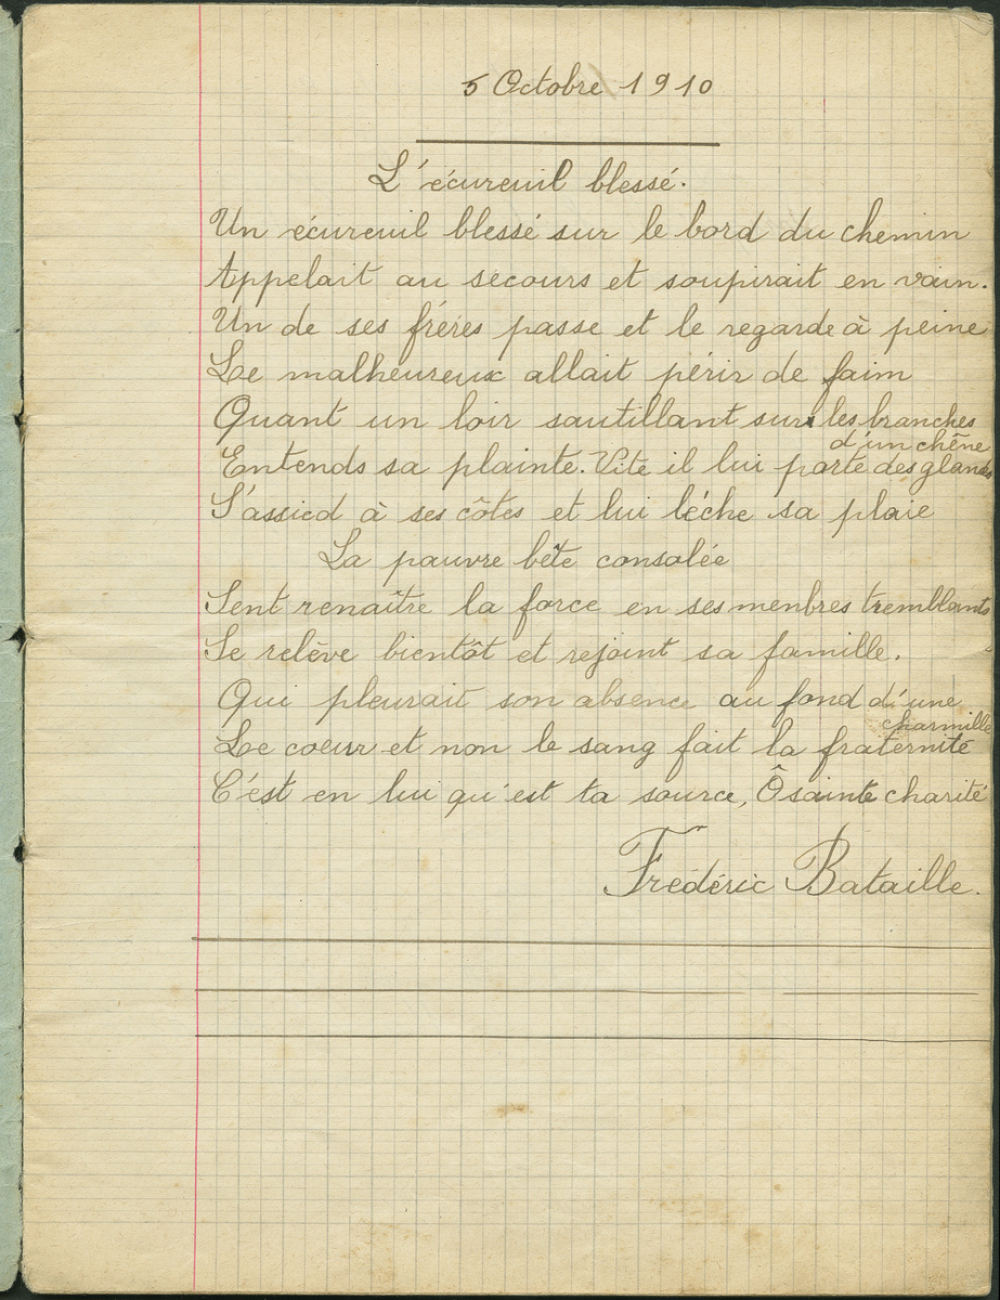 5 Octobre 1910
L'écureuil blessé.
Un écureuil blessé sur le bord du chemin
Appelait au secours et soupirait en vain.
Un de ses fréres passe et le regarde à peine
Le malheureux allait périr de faim
Quant un loir sautillant sur les branches
d'un chêne
Entends sa plainte. Vite il lui porte des glands
S'assied à ses côtes et lui lèche sa plaie
La pauvre bête consolée
Sent renaître la force en ses menbres tremblants
Se relève bientôt et rejoint sa famille.
Qui pleurait son absence au fond d'une
charmille
Le coeur et non le sang fait la fraternité
C'est en lui qu'est ta source, Ô sainte charité
Frédéric Bataille.